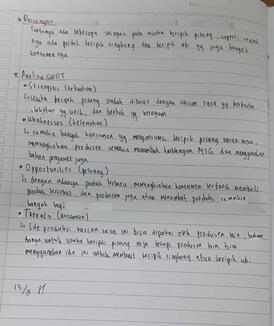 • Persaingan
Tentunya ada beberapa saingan pada usaha keripik pisang seperti
nya ada produk keripik singkong dan keripik ubi yg juga banyak
konsumennya
* Analisa SWOT
• Strengths (kekuatan)
↳ Usaha keripik pisang sudah dibuat dengan varian rasa yg berbeda
tekstur yg unik, dan bentuk yg beragam
• Weaknesses (kelemahan)
↳ semakin banyak konsumen yg mengonsumsi keripik pisang varian rasa,
memungkinkan produsen semakin menambah kandungan MSG dan menggunakan
bahan pengawet juga
• Opportunities (peluang)
↳ dengan adanya produk terbaru, memungkinkan konsumen tertarik membeli
produk tersebut, dan produsen juga akan menambah produksi semakin
banyak lagi
• Threats (ancaman)
↳ Ide produksi varian rasa ini bisa dipakai oleh produsen lain, bukan
hanya untuk usaha keripik pisang saja tetapi produsen lain bisa
menggunakan ide ini untuk membuat keripik singkong atau keripik ubi.
13/8